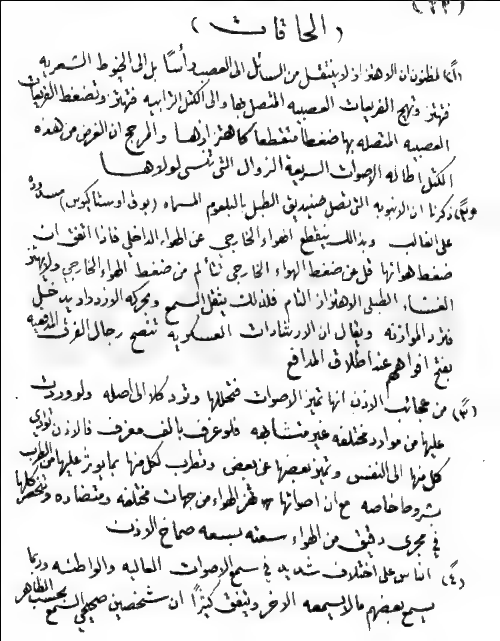 (٢٣)
(الحاقات)
(١) المظنون ان الاهتزاز لا ينتقل من السائل الى العصب رأسًا بل الى الخيوط الشعريه
فتهتز وتهيج الفريعات العصبيه المتصل بها والى الكتل الترابيه فتهتز وتضغط الفريعات
العصبيه المتصله بها ضغطا متقطعا كاهتزازها والمرجح ان الغرض من هذه
الكتل اطاله الاصوات السريعة الزوال التى تنسى لولاها
(٢) ذكرنا ان الانبوبه التى تصل صنيديق الطبل بالبلعوم المسماه (بوق اوستاكيوس) مسدوده
على الغالب وبذلك ينقطع الهواء الخارجى عن الهواء الداخلى فاذا اتفق ان
ضغط هوائها قل عن ضغط الهواء الخارجى نتألم من ضغط الهواء الخارجى ولا يهتز
الغشاء الطبلى الاهتزاز التام فلذلك يثقل السمع ومحركه الازدراد يدخل
فترد الموازنه ويقال ان الارشادات العسكريه تنصح رجال الفرق المدفعيه
بفتح افواههم عند اطلاق المدافع
(٣) من عجائب الاذن انها تميز الاصوات فتحللها وترد كلا الى اصله ولو وردت
عليها من موارد مختلفه غير متشابهه فلو عزف بالف معزف فالاذن تؤدي
كل منها الى النفس وتميز بعضها عن بعض وتطرب لكل منها بما يوثر عليها من الطرب
بشروط خاصه مع ان اصواتها تهز الهواء من جهات مختلفه ومتضاده وتنحصر كلها
فى مجرى دقيق من الهواء سعته بسعه صماخ الاذن
(٤) الناس على اختلاف شديد فى سمع الاصوات العاليه والواطئه وربما
يسمع بعضهم مالا يسمعه الاخر ويتفق كثيرًا ان شخصين صحيحى السمع بحسب الظاهر